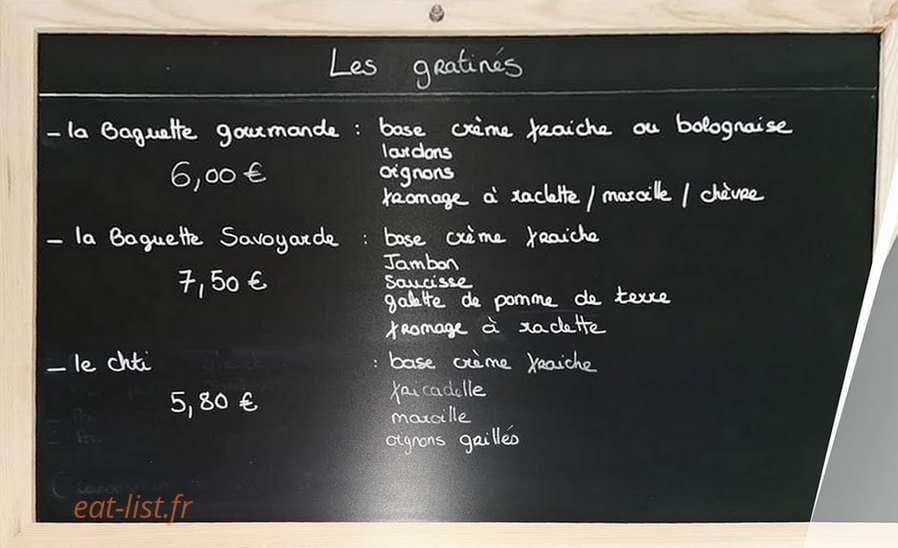 Les gratinés
- la Baguette gourmande : base crème fraiche ou bolognaise
lardons
6,00 €
oignons
fromage à raclette / maroille / chèvre
- la Baguette Savoyarde : base crème fraiche
Jambon
7,50 €
Saucisse
galette de pomme de terre
fromage à raclette
- le chti : base crème fraiche
fricadelle
5,80 €
maroille
oignons grillés
eat-list.fr